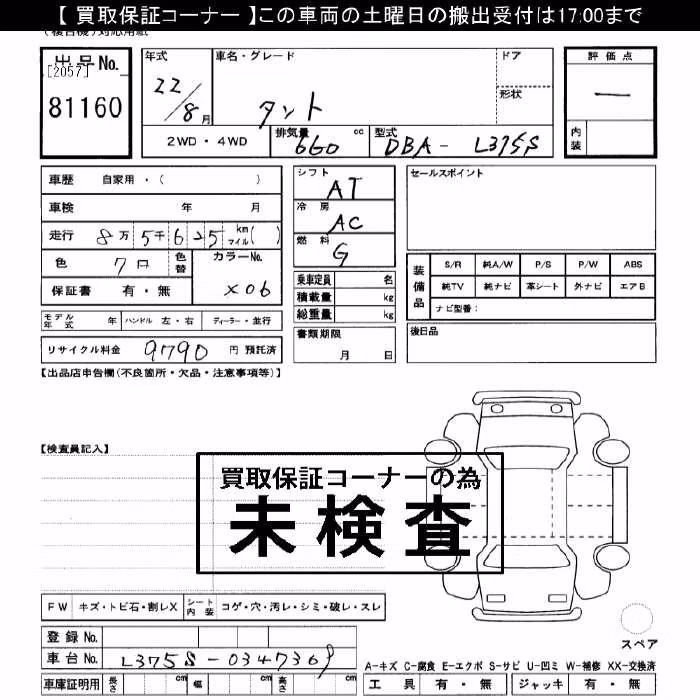 【 買取保証コーナー 】この車両の土曜日の搬出受付は17:00まで
(複合機)対応用紙
出品No.
[2057]
81160
年式
22/8月
車名・グレード
タント
ドア
形状
評価点
―
内装
2WD・4WD
排気量 660 cc
型式 DBA- L375S
車歴 自家用・( )
車検 年 月
走行 8万5千625 km マイル( )
色 クロ 色替
カラーNo. X06
保証書 有・無
モデル年式 年 ハンドル 左・右 ディーラー・並行
リサイクル料金 9790 円 預託済
シフト AT
冷房 AC
燃料 G
乗車定員 名
積載量 kg
総重量 kg
書類期限
月 日
セールスポイント
装備品
S/R 純A/W P/S P/W ABS
純TV 純ナビ 革シート 外ナビ エアB
ナビ型番:
後日品
【出品店申告欄(不良箇所・欠品・注意事項等)】
【検査員記入】
買取保証コーナーの為
未検査
FW キズ・トビ石・割レX シート内装 コゲ・穴・汚レ・シミ・破レ・スレ
登録No.
車台No. L375S-0347369
車庫証明用 長さ cm 幅 cm 高さ cm
スペア
A-キズ C-腐食 E-エクボ S-サビ U-凹ミ W-補修 XX-交換済
工具 有・無 ジャッキ 有・無